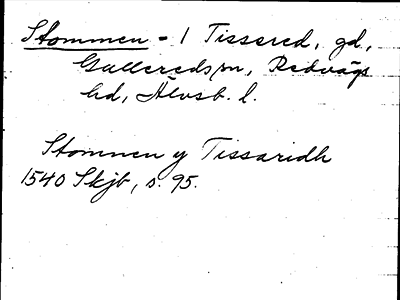 Stommen - 1 Tissered, gd,
Gullereds sn, Redvägs
hd, Älvsb. l.
Stomnen y Tissaridh
1540 Skjb, s. 95.